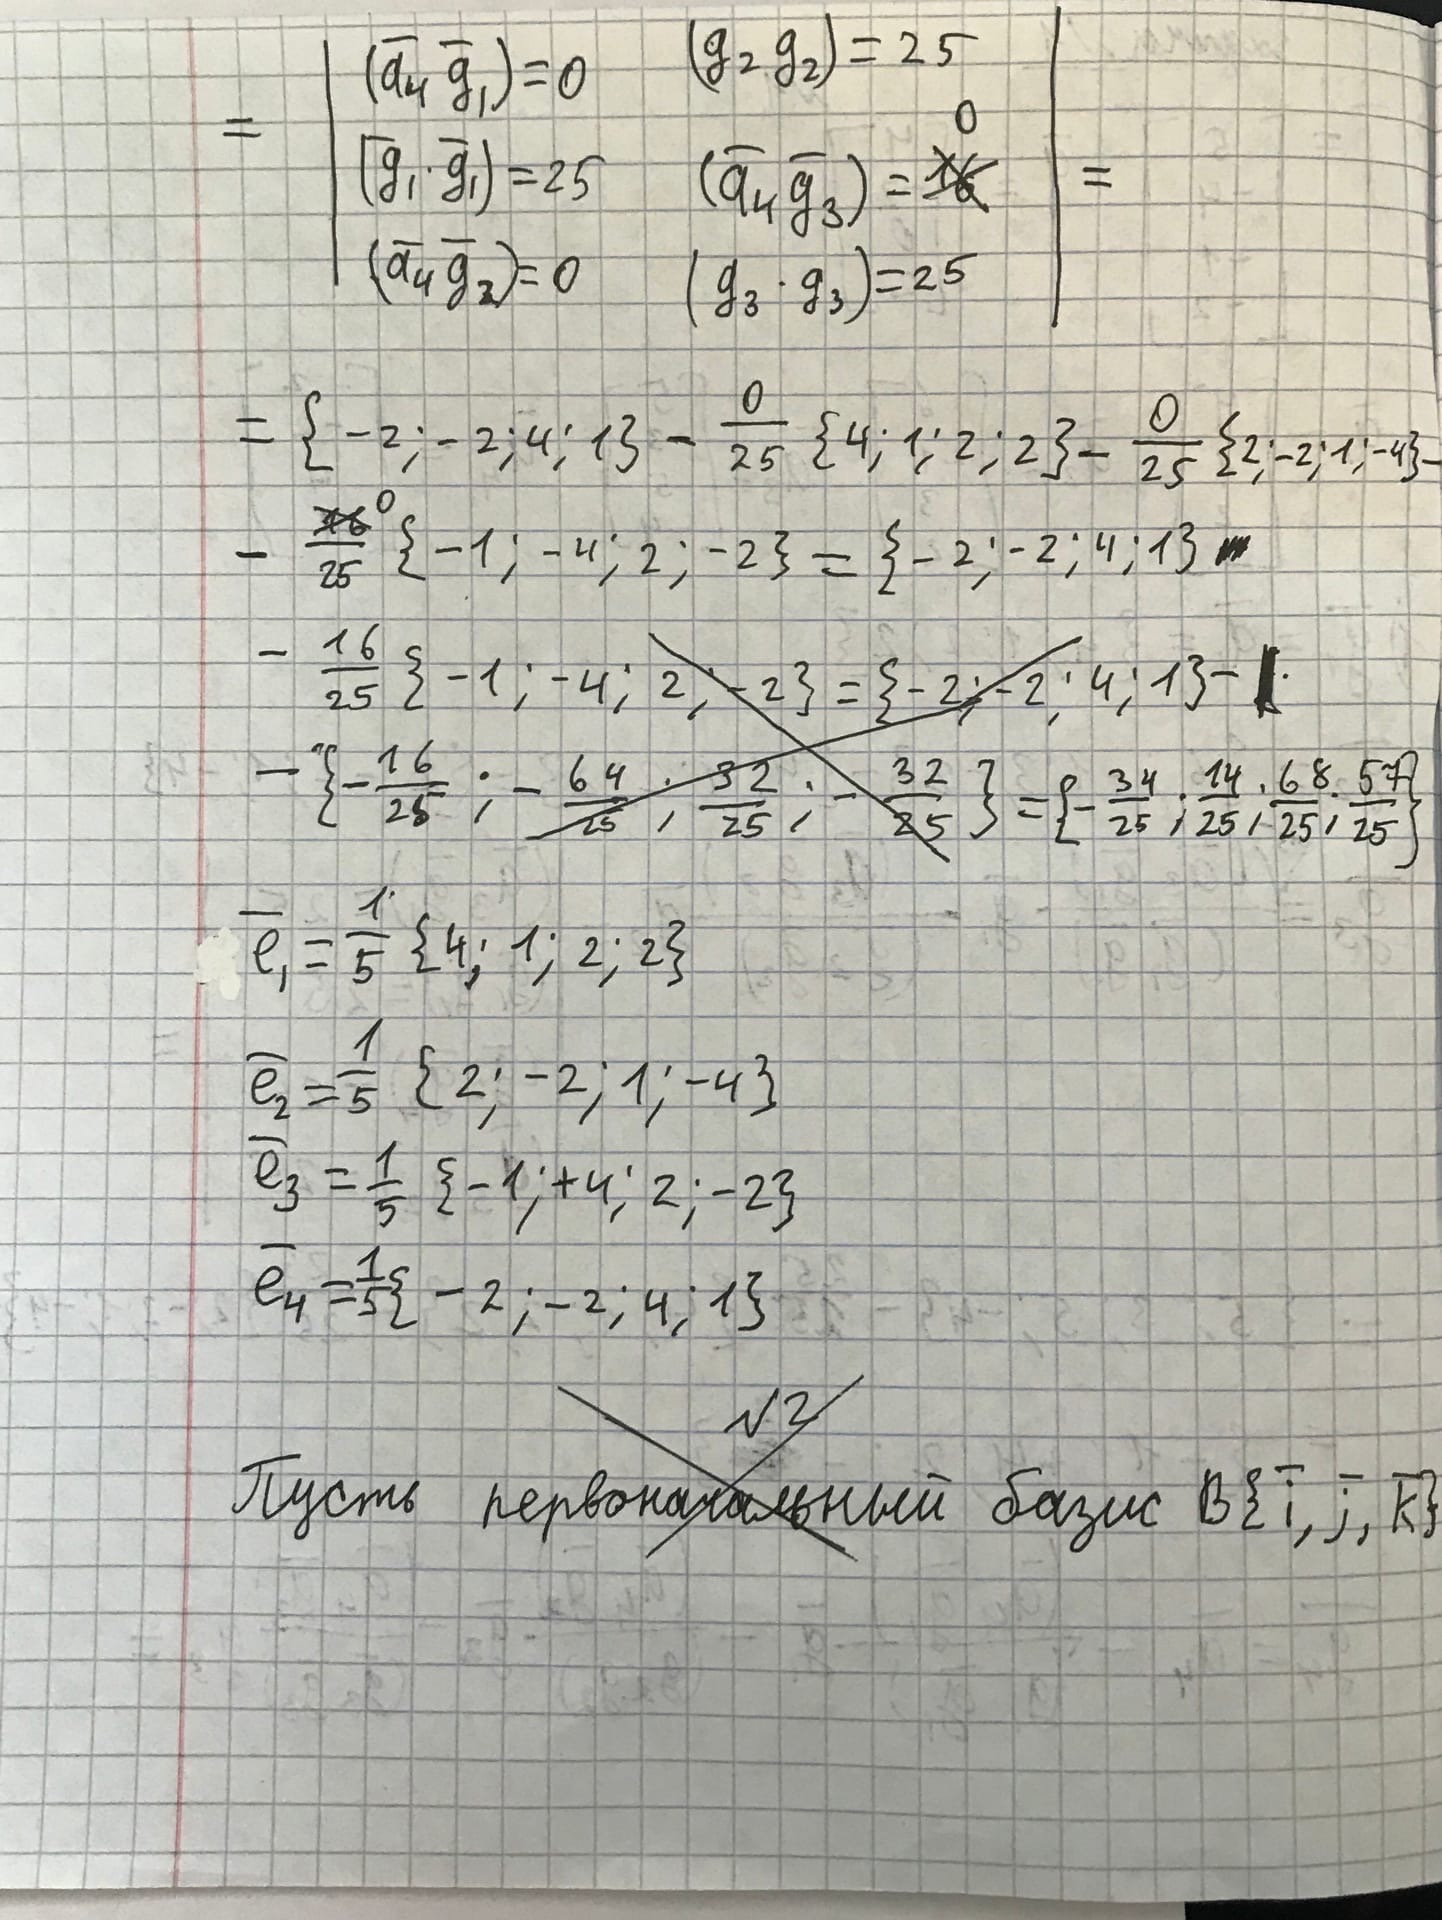 (a̅₄ g̅₁) = 0 (g₂ g₂) = 25
= (g̅₁ · g̅₁) = 25 (a̅₄ g̅₃) = 1̶6̶ 0 =
(a̅₄ g̅₂) = 0 (g₃ · g₃) = 25
= {-2; -2; 4; 1} - 0/25 {4; 1; 2; 2} - 0/25 {2; -2; 1; -4} -
- 1̶6̶ 0/25 {-1; -4; 2; -2} = {-2; -2; 4; 1}
- 16/25 {-1; -4; 2; -2} = {-2; -2; 4; 1} -
- {-16/25; -64/25; 32/25; -32/25} = {-34/25; 14/25; 68/25; 57/25}
e̅₁ = 1/5 {4; 1; 2; 2}
e̅₂ = 1/5 {2; -2; 1; -4}
e̅₃ = 1/5 {-1; +4; 2; -2}
e̅₄ = 1/5 {-2; -2; 4; 1}
√2
Пусть первоначальный базис B{i̅, j̅, k̅}